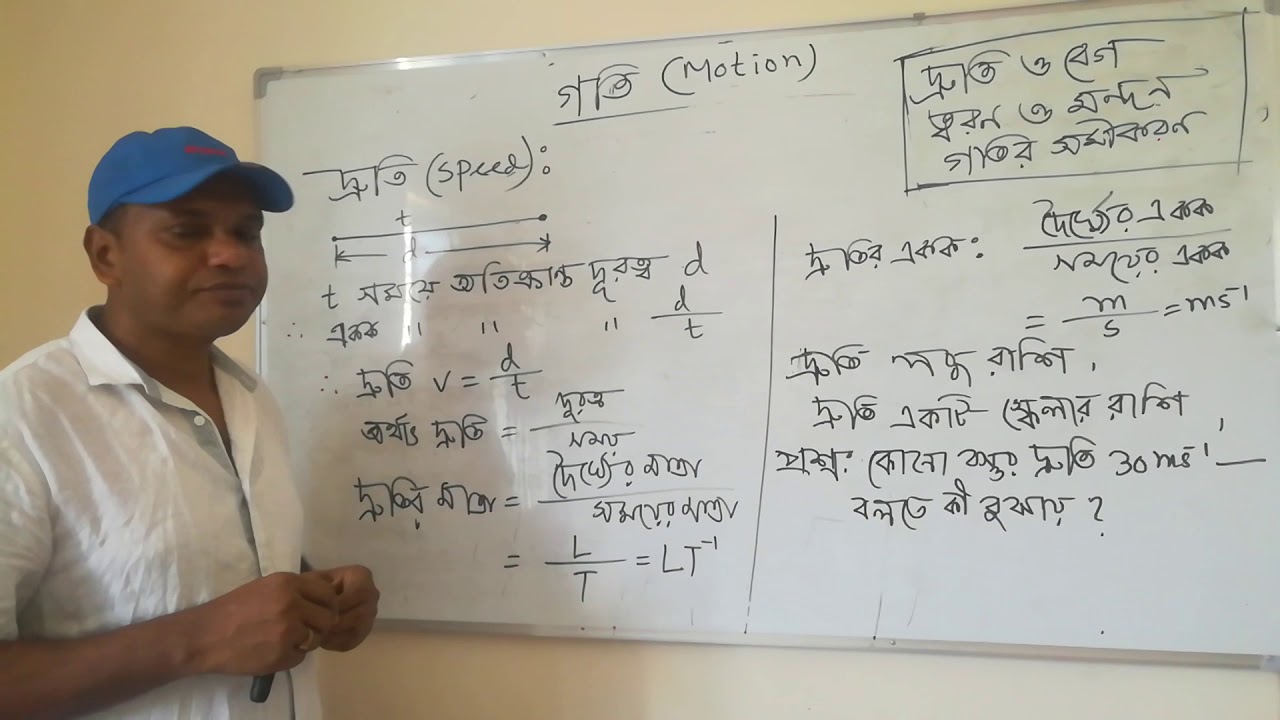 গতি (Motion)
দ্রুতি ও বেগ
ত্বরন ও মন্দন
গতির সমীকরন
দ্রুতি (speed):
t
d
t সময়ে অতিক্রান্ত দূরত্ব d
∴ একক " " " d/t
∴ দ্রুতি v = d/t
অর্থাৎ দ্রুতি = দূরত্ব/সময়
দ্রুতির মাত্রা = দৈর্ঘ্যের মাত্রা/সময়ের মাত্রা
= L/T = LT⁻¹
দ্রুতির একক: দৈর্ঘ্যের একক/সময়ের একক
= m/s = ms⁻¹
দ্রুতি লব্ধ রাশি,
দ্রুতি একটি স্কেলার রাশি,
প্রশ্ন: কোনো বস্তুর দ্রুতি 30 ms⁻¹ —
বলতে কী বুঝায়?